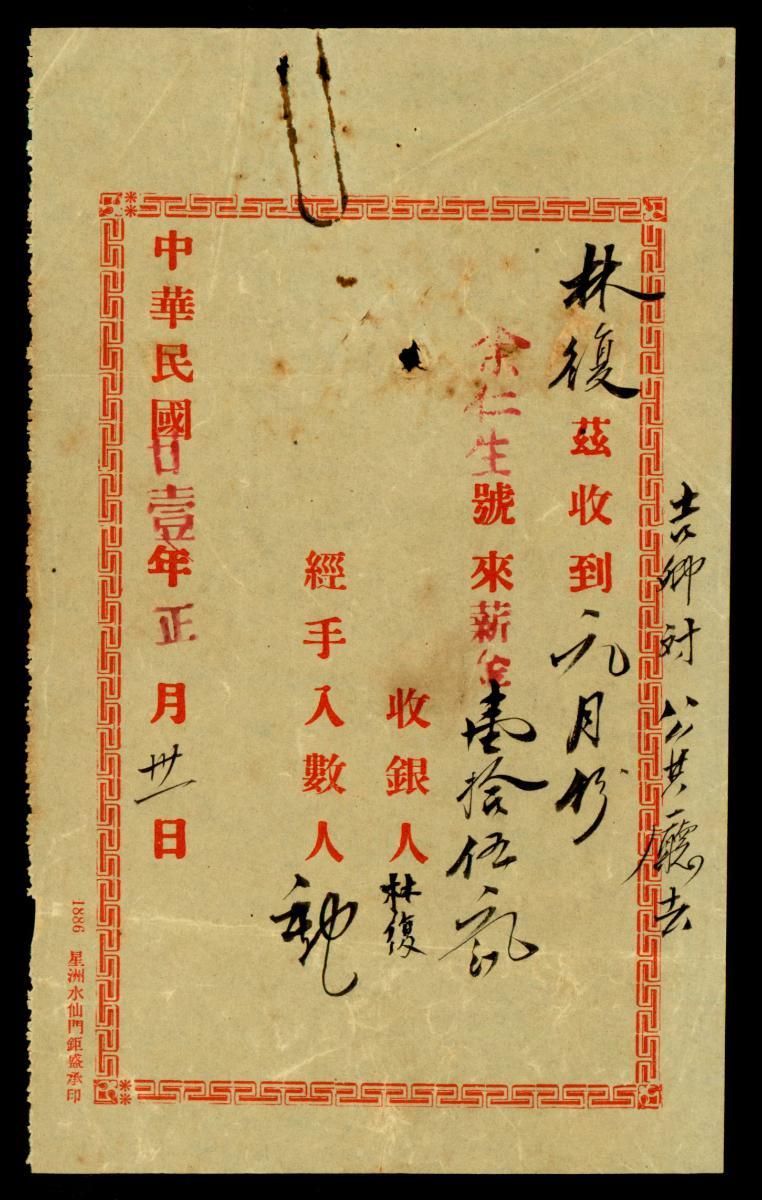 吉卿対公共廳去
林復茲收到元月份
余仁生號來薪金壹拾伍元
收銀人林復
經手入數人
中華民國廿壹年正月卅一日
1886 星洲水仙門鉅盛承印